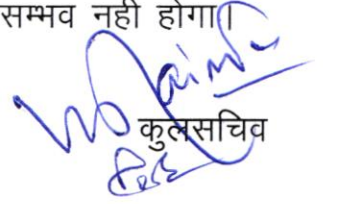 सम्भव नही होगा।
कुलसचिव